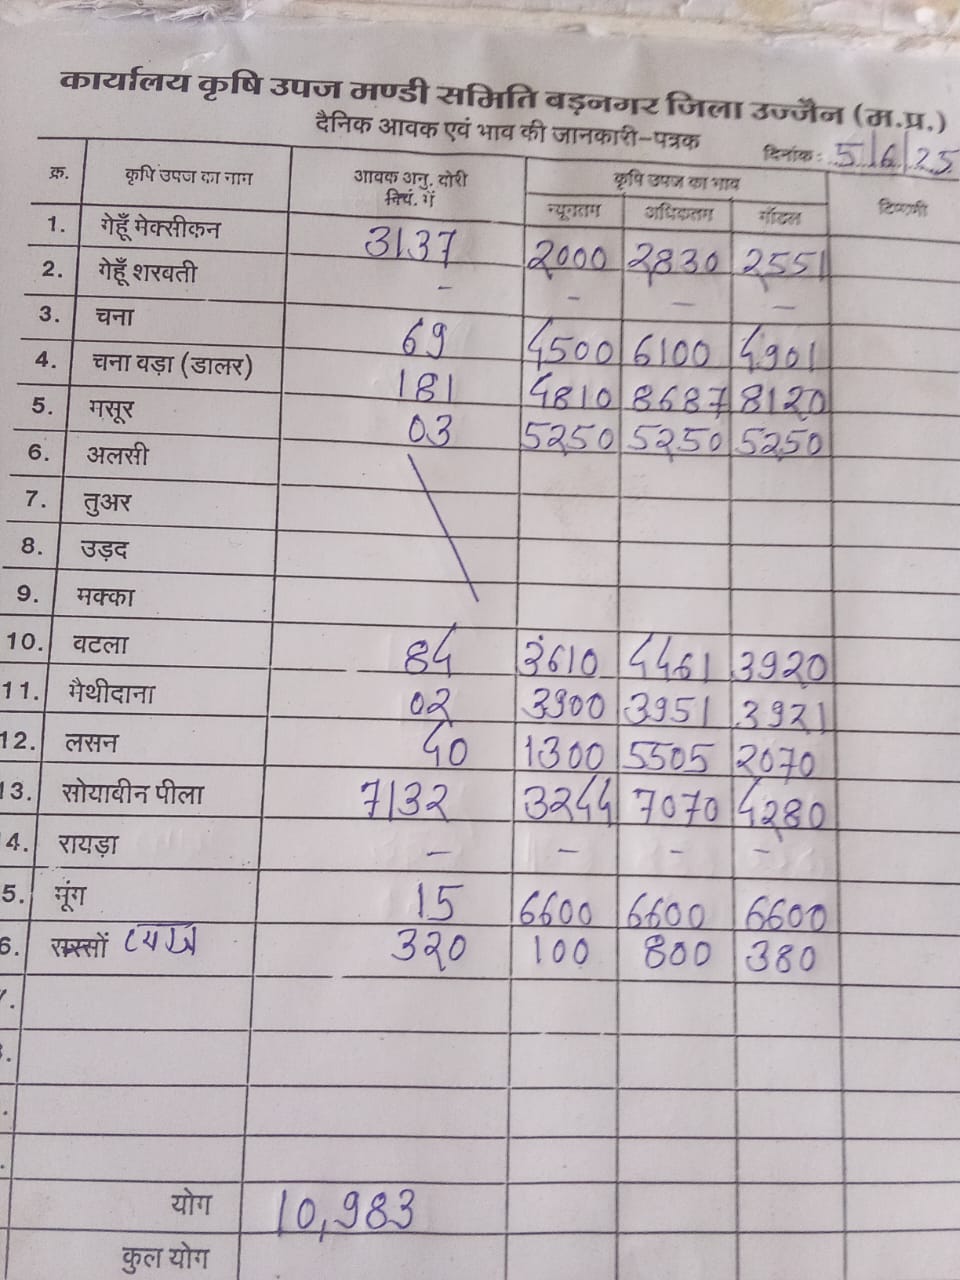 कार्यालय कृषि उपज मण्डी समिति बड़नगर जिला उज्जैन (म.प्र.)
दैनिक आवक एवं भाव की जानकारी-पत्रक
दिनांक: 5/6/25
क्र. कृषि उपज का नाम आवक अनु. बोरी क्विं. में कृषि उपज का भाव टिप्पणी
न्यूनतम अधिकतम मॉडल
1. गेहूँ मेक्सीकन 3137 2000 2830 2551
2. गेहूँ शरबती - - - -
3. चना 69 4500 6100 4901
4. चना बड़ा (डालर) 181 4810 8687 8120
5. मसूर 03 5250 5250 5250
6. अलसी
7. तुअर
8. उड़द
9. मक्का
10. बटला 84 3610 4461 3920
11. मैथीदाना 02 3900 3951 3921
12. लसन 40 1300 5505 2070
13. सोयाबीन पीला 7132 3244 7070 4280
4. रायड़ा - - - -
5. मूंग 15 6600 6600 6600
6. सरसों 320 100 800 380
योग 10,983
कुल योग